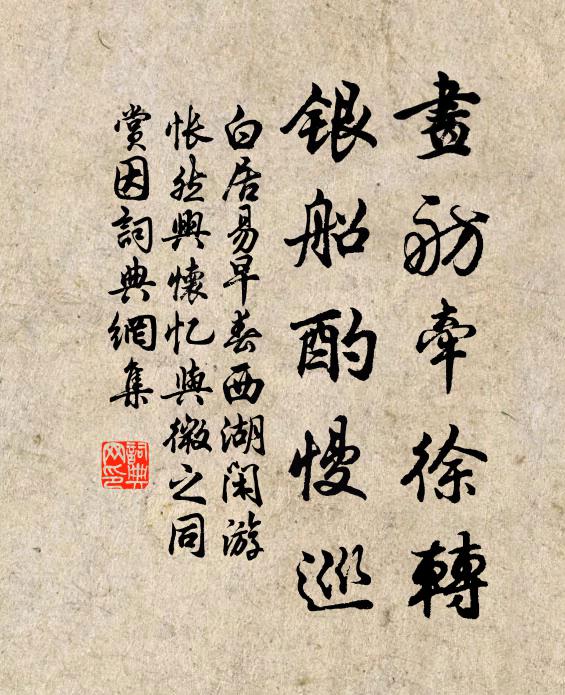 畫舫牽徐轉
銀船酌慢巡
白居易早春西湖閑游
怅然興懷忆與微之同
賞因詞典網集
詞典
网印